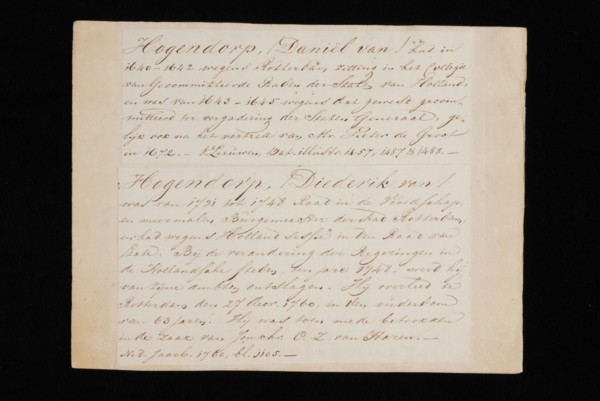 Hogendorp, (Daniël van) Zat in
1640-1642 wegens Rotterdam zitting in het Collegie
van Gecommitteerde Raden der Staten van Holland,
en was van 1643-1645 wegens dat gewest gecom-
mitteerd ter vergadering der Staten Generaal, ge-
lijk ook na het vertrek van Mr. Pieter de Groot
in 1672. - v. Leeuwen, Bat. illustr. 1457, 1487 & 1488. -
Hogendorp, (Diederik van)
was van 1721 tot 1748 Raad in de Vroedschap,
en meermalen Burgemeester der stad Rotterdam,
en had wegens Holland sessie in den Raad van
State. Bij de verandering der Regeringen in
de Hollandsche steden, den jare 1748, werd hij
van zijne ambten ontslagen. Hij overleed te
Rotterdam den 27 1760, in den ouderdom
van 63 jaren. Hij was toen mede betrokken
in de zaak van Jonkhr. O. Z. van Haren. -
Ned. Jaarb. 1760, bl. 1105. -